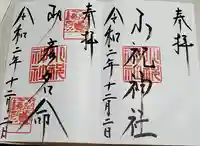 奉拝
小祝神社
令和二年十二月二日
奉拝
少彦名命
令和二年十二月二日